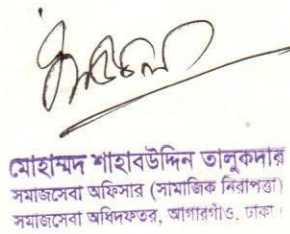 মোহাম্মদ শাহাবউদ্দিন তালুকদার
সমাজসেবা অফিসার (সামাজিক নিরাপত্তা)
সমাজসেবা অধিদফতর, আগারগাঁও, ঢাকা।